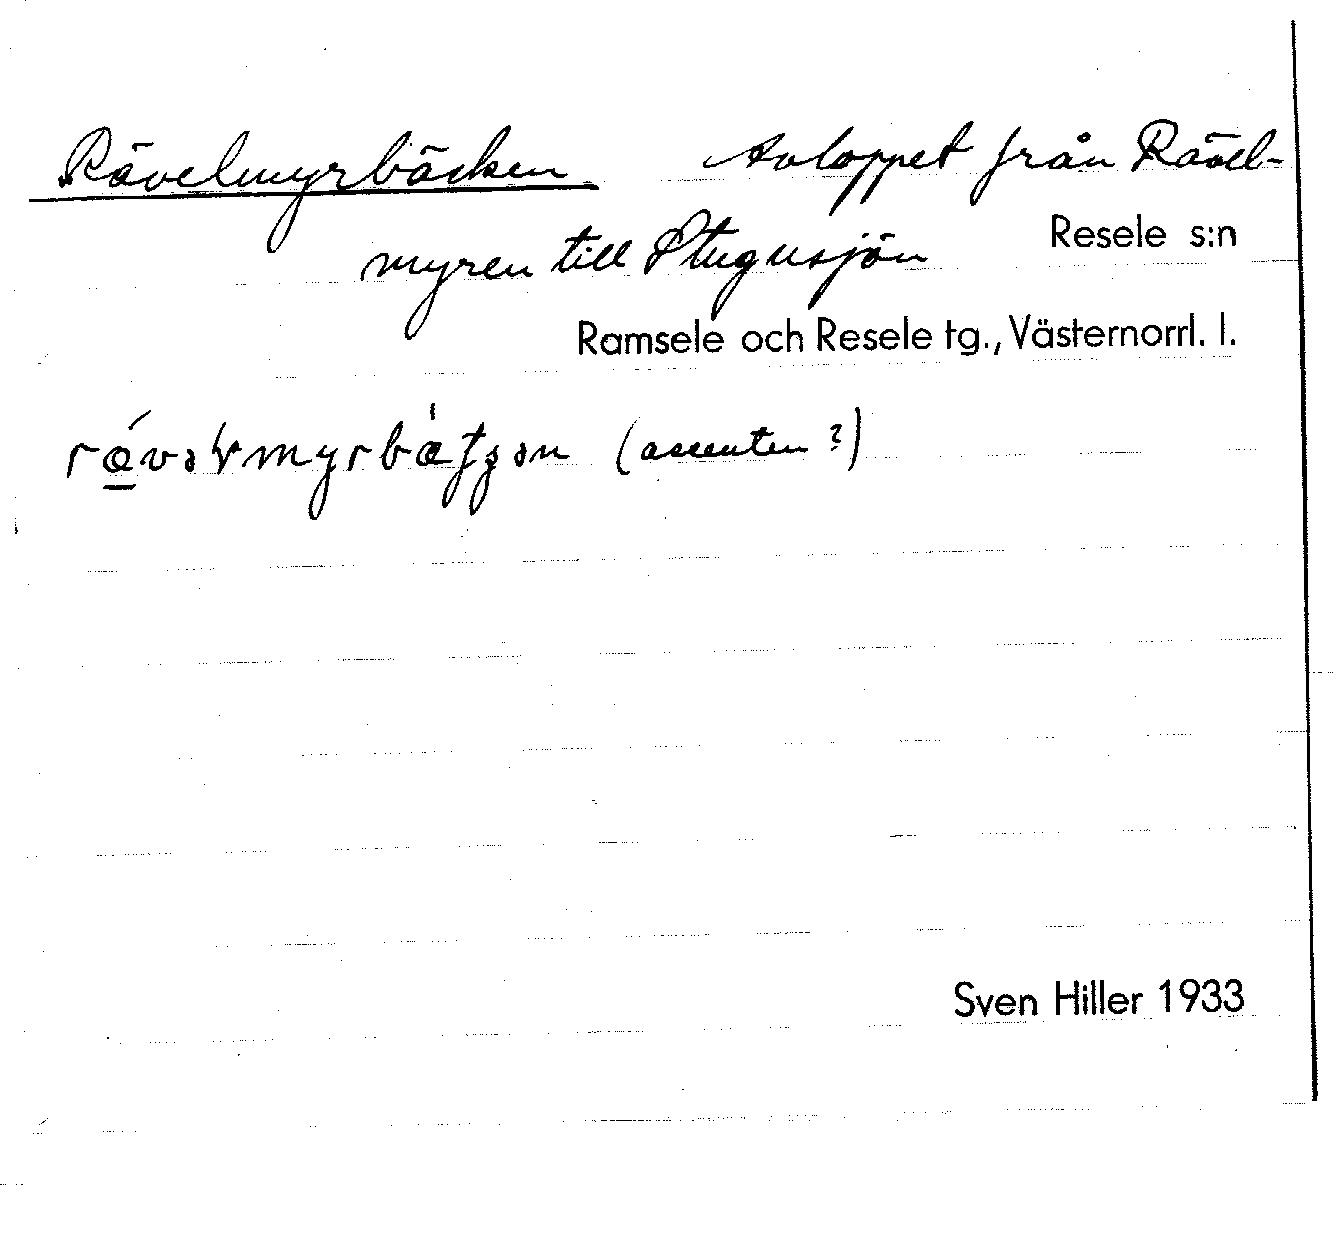 Rävelmyrbäcken Avloppet från Rävel-
myren till Stugusjön Resele s:n
Ramsele och Resele tg., Västernorrl. l.
(accenten ?)
Sven Hiller 1933